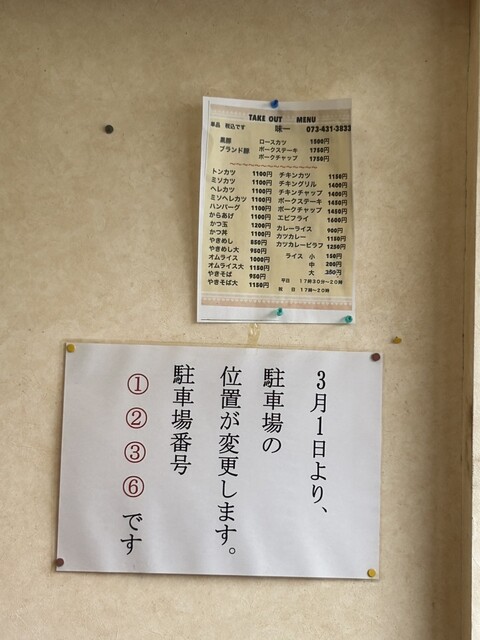 TAKE OUT MENU
単品 税込です 味一 073-431-3833
黒豚 ロースカツ 1500円
ブランド豚 ポークステーキ 1750円
ポークチャップ 1750円
トンカツ 1100円
ミソカツ 1100円
ヘレカツ 1100円
ミソヘレカツ 1100円
ハンバーグ 1100円
からあげ 1100円
かつ玉 1200円
かつ丼 1100円
やきめし 850円
やきめし大 950円
オムライス 1000円
オムライス大 1150円
やきそば 950円
やきそば大 1150円
チキンカツ 1150円
チキングリル 1400円
チキンチャップ 1400円
ポークステーキ 1450円
ポークチャップ 1450円
エビフライ 1600円
カレーライス 900円
カツカレー 1150円
カツカレーピラフ 1250円
ライス 小 150円
中 200円
大 250円
平日 17時30分〜20時
祝日 17時〜20時
3月1日より、
駐車場の
位置が変更します。
駐車場番号
①②③⑥です